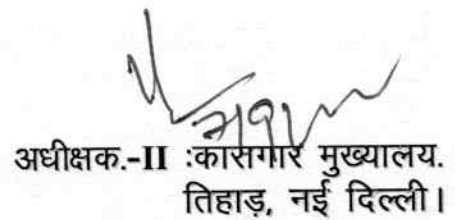 अधीक्षक.-II :कारागार मुख्यालय.
तिहाड़, नई दिल्ली।